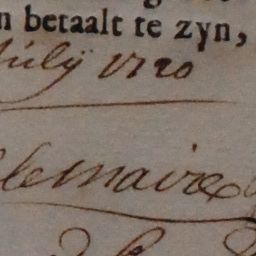 n betaalt te zyn,
July 1720
lemaire